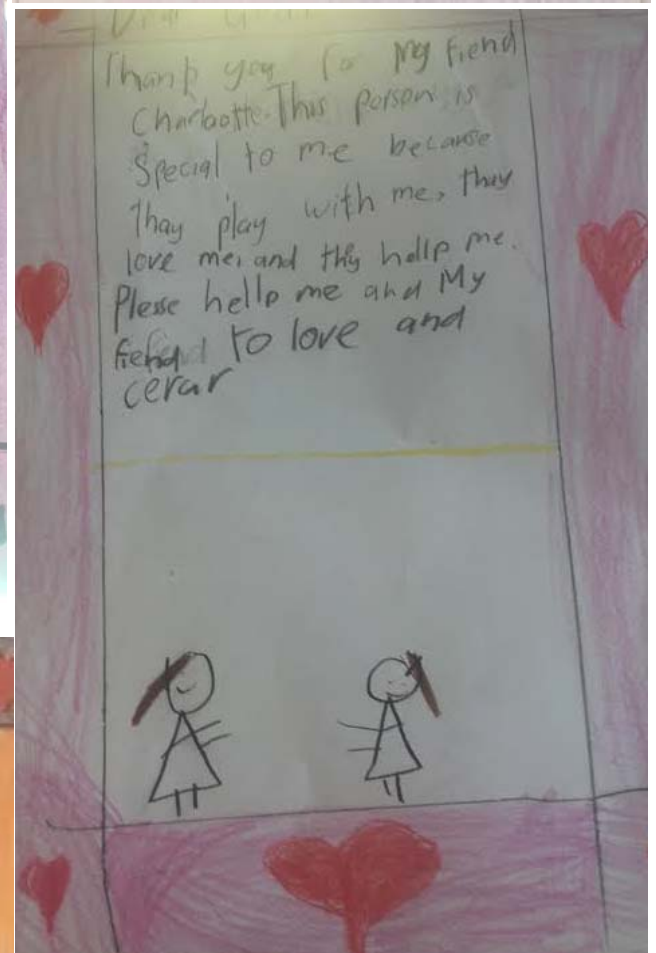 Thank you for My fiend
Charlotte. This person is
Special to me because
Thay play with me, thay
love me, and thy hellp me.
Plesse hellp me and My
fiend to love and
cerar